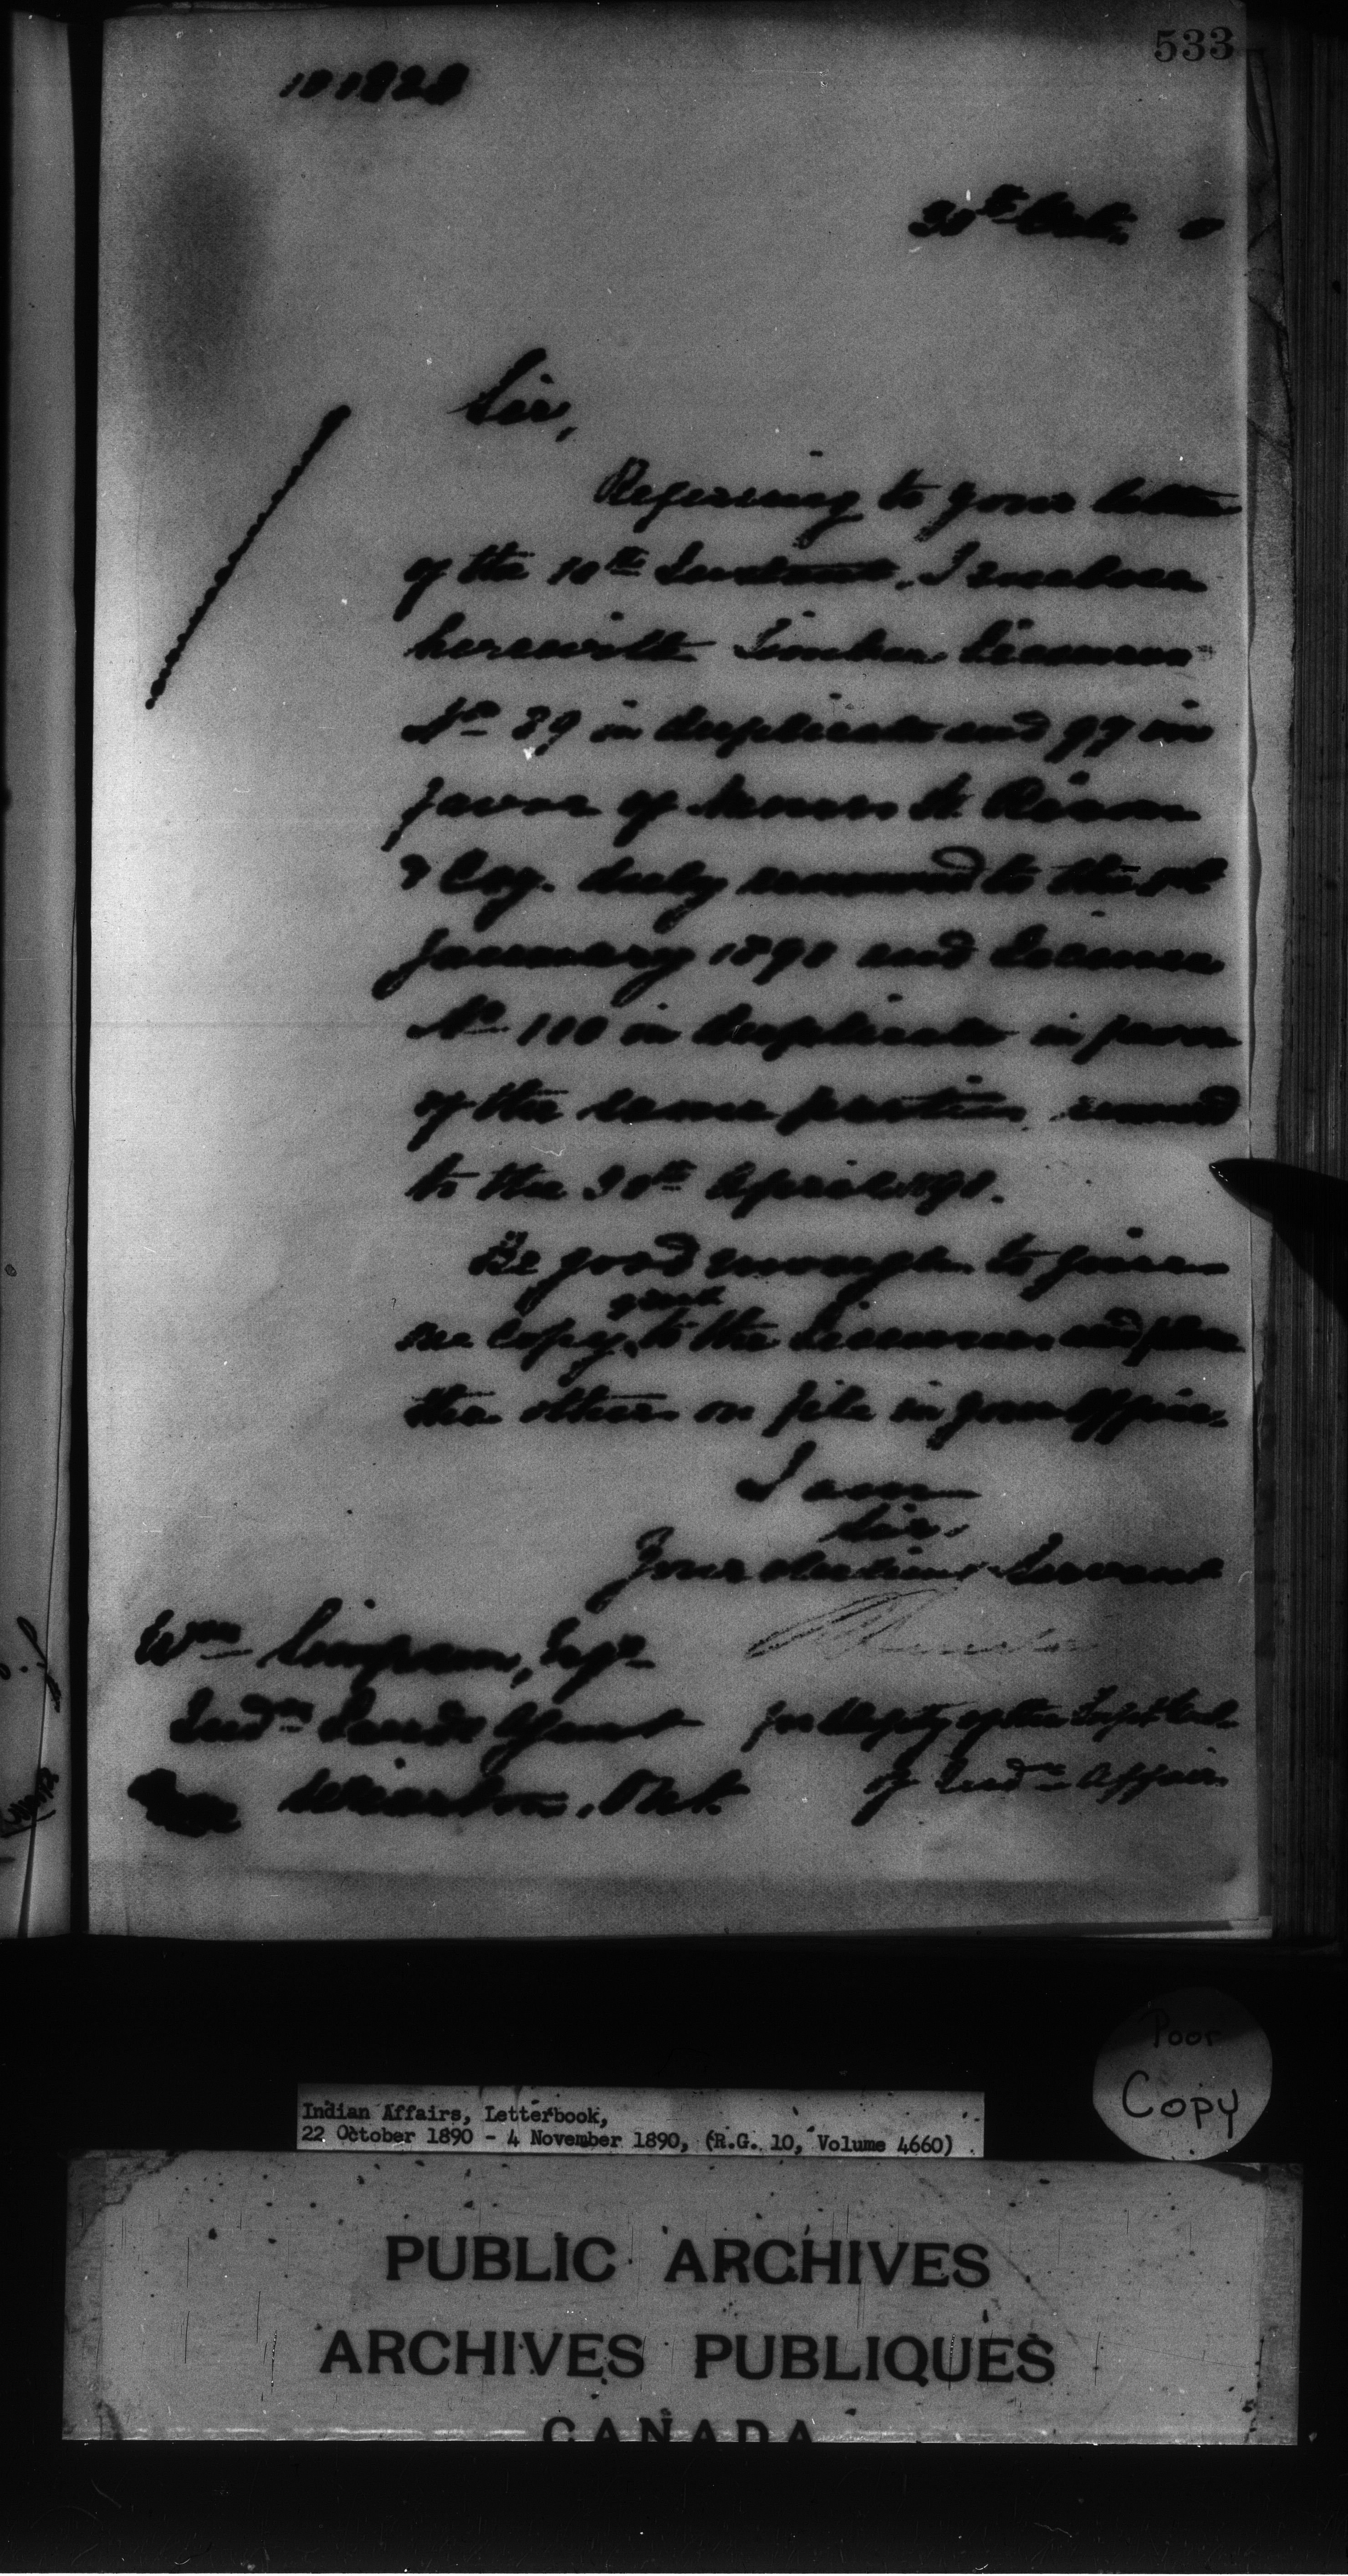 533
30th Oct. 0
Sir,
Referring to your letter
of the 10th Instant, I enclose
herewith Timber Licenses
No 39 in duplicate and 97 in
favor of Messrs
& Coy. duly renewed to the
January 1891 and License
No 110 in duplicate in favor
of the same parties renewed
to the 30th April 1891.
Be good enough to give
one copy each to the Licensees and place
the others on file in your office.
I am
Sir,
Your obedient Servant
Wm Simpson, Esqr
Indn Lands Agent
for Deputy of the Supt Genl
of Indn Affairs
Wiarton, Ont.
Poor
Copy
Indian Affairs, Letterbook,
22 October 1890 - 4 November 1890, (R.G. 10, Volume 4660)
PUBLIC ARCHIVES
ARCHIVES PUBLIQUES
CANADA